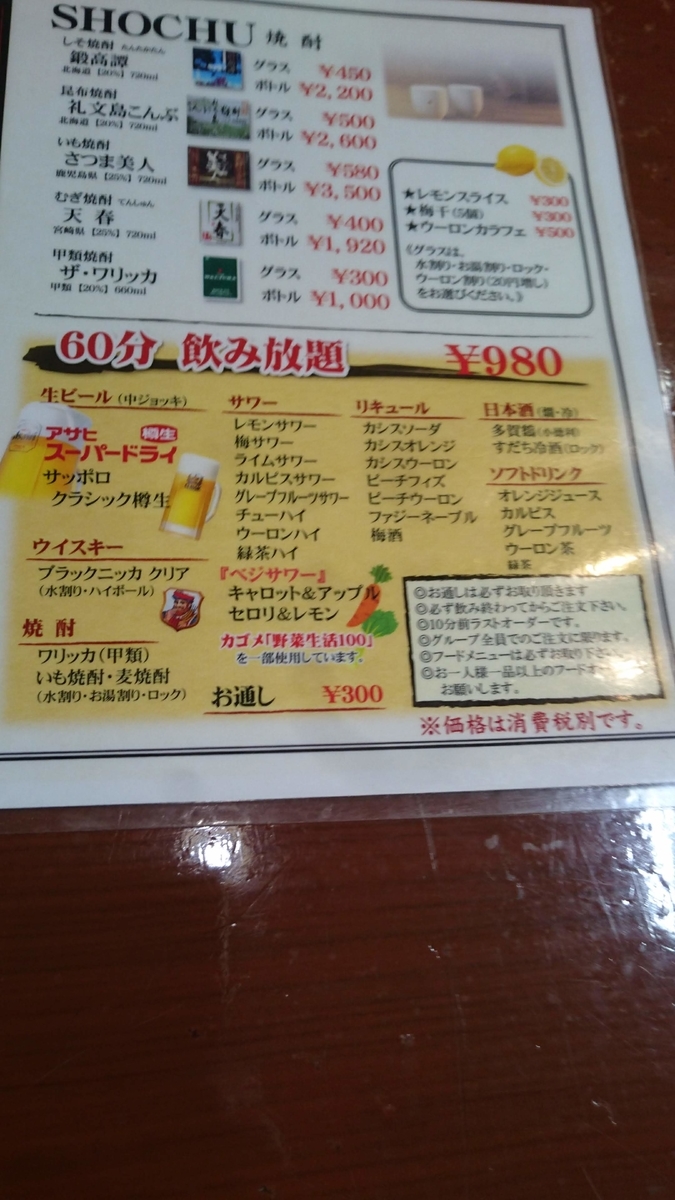 SHOCHU 焼酎
しそ焼酎 たんたかたん
鍛高譚
北海道【20%】720ml
グラス ¥450
ボトル ¥2,200
昆布焼酎
礼文島こんぶ
北海道【20%】720ml
グラス ¥500
ボトル ¥2,600
いも焼酎
さつま美人
鹿児島県【25%】720ml
グラス ¥580
ボトル ¥3,500
むぎ焼酎 てんしゅん
天春
宮崎県【25%】720ml
天春
グラス ¥400
ボトル ¥1,920
甲類焼酎
ザ・ワリッカ
甲類【20%】660ml
グラス ¥300
ボトル ¥1,000
★レモンスライス ¥300
★梅干(5個) ¥300
★ウーロンカラフェ ¥500
《グラスは、
水割り・お湯割り・ロック・
ウーロン割り(20円増し)
をお選びください。》
60分 飲み放題 ¥980
生ビール(中ジョッキ)
アサヒ 樽生
スーパードライ
サッポロ
クラシック樽生
ウイスキー
ブラックニッカ クリア
(水割り・ハイボール)
焼酎
ワリッカ(甲類)
いも焼酎・麦焼酎
(水割り・お湯割り・ロック)
サワー
レモンサワー
梅サワー
ライムサワー
カルピスサワー
グレープフルーツサワー
チューハイ
ウーロンハイ
緑茶ハイ
『ベジサワー』
キャロット&アップル
セロリ&レモン
カゴメ「野菜生活100」
を一部使用しています。
お通し ¥300
リキュール
カシスソーダ
カシスオレンジ
カシスウーロン
ピーチフィズ
ピーチウーロン
ファジーネーブル
梅酒
日本酒(燗・冷)
多賀鶴(小徳利)
すだち冷酒(ロック)
ソフトドリンク
オレンジジュース
カルピス
グレープフルーツ
ウーロン茶
緑茶
◎お通しは必ずお取り頂きます
◎必ず飲み終わってからご注文下さい。
◎10分前ラストオーダーです。
◎グループ全員でのご注文に限ります。
◎フードメニューは必ずお取り下さい
◎お一人様一品以上のフードオ
お願いします。
※価格は消費税別です。